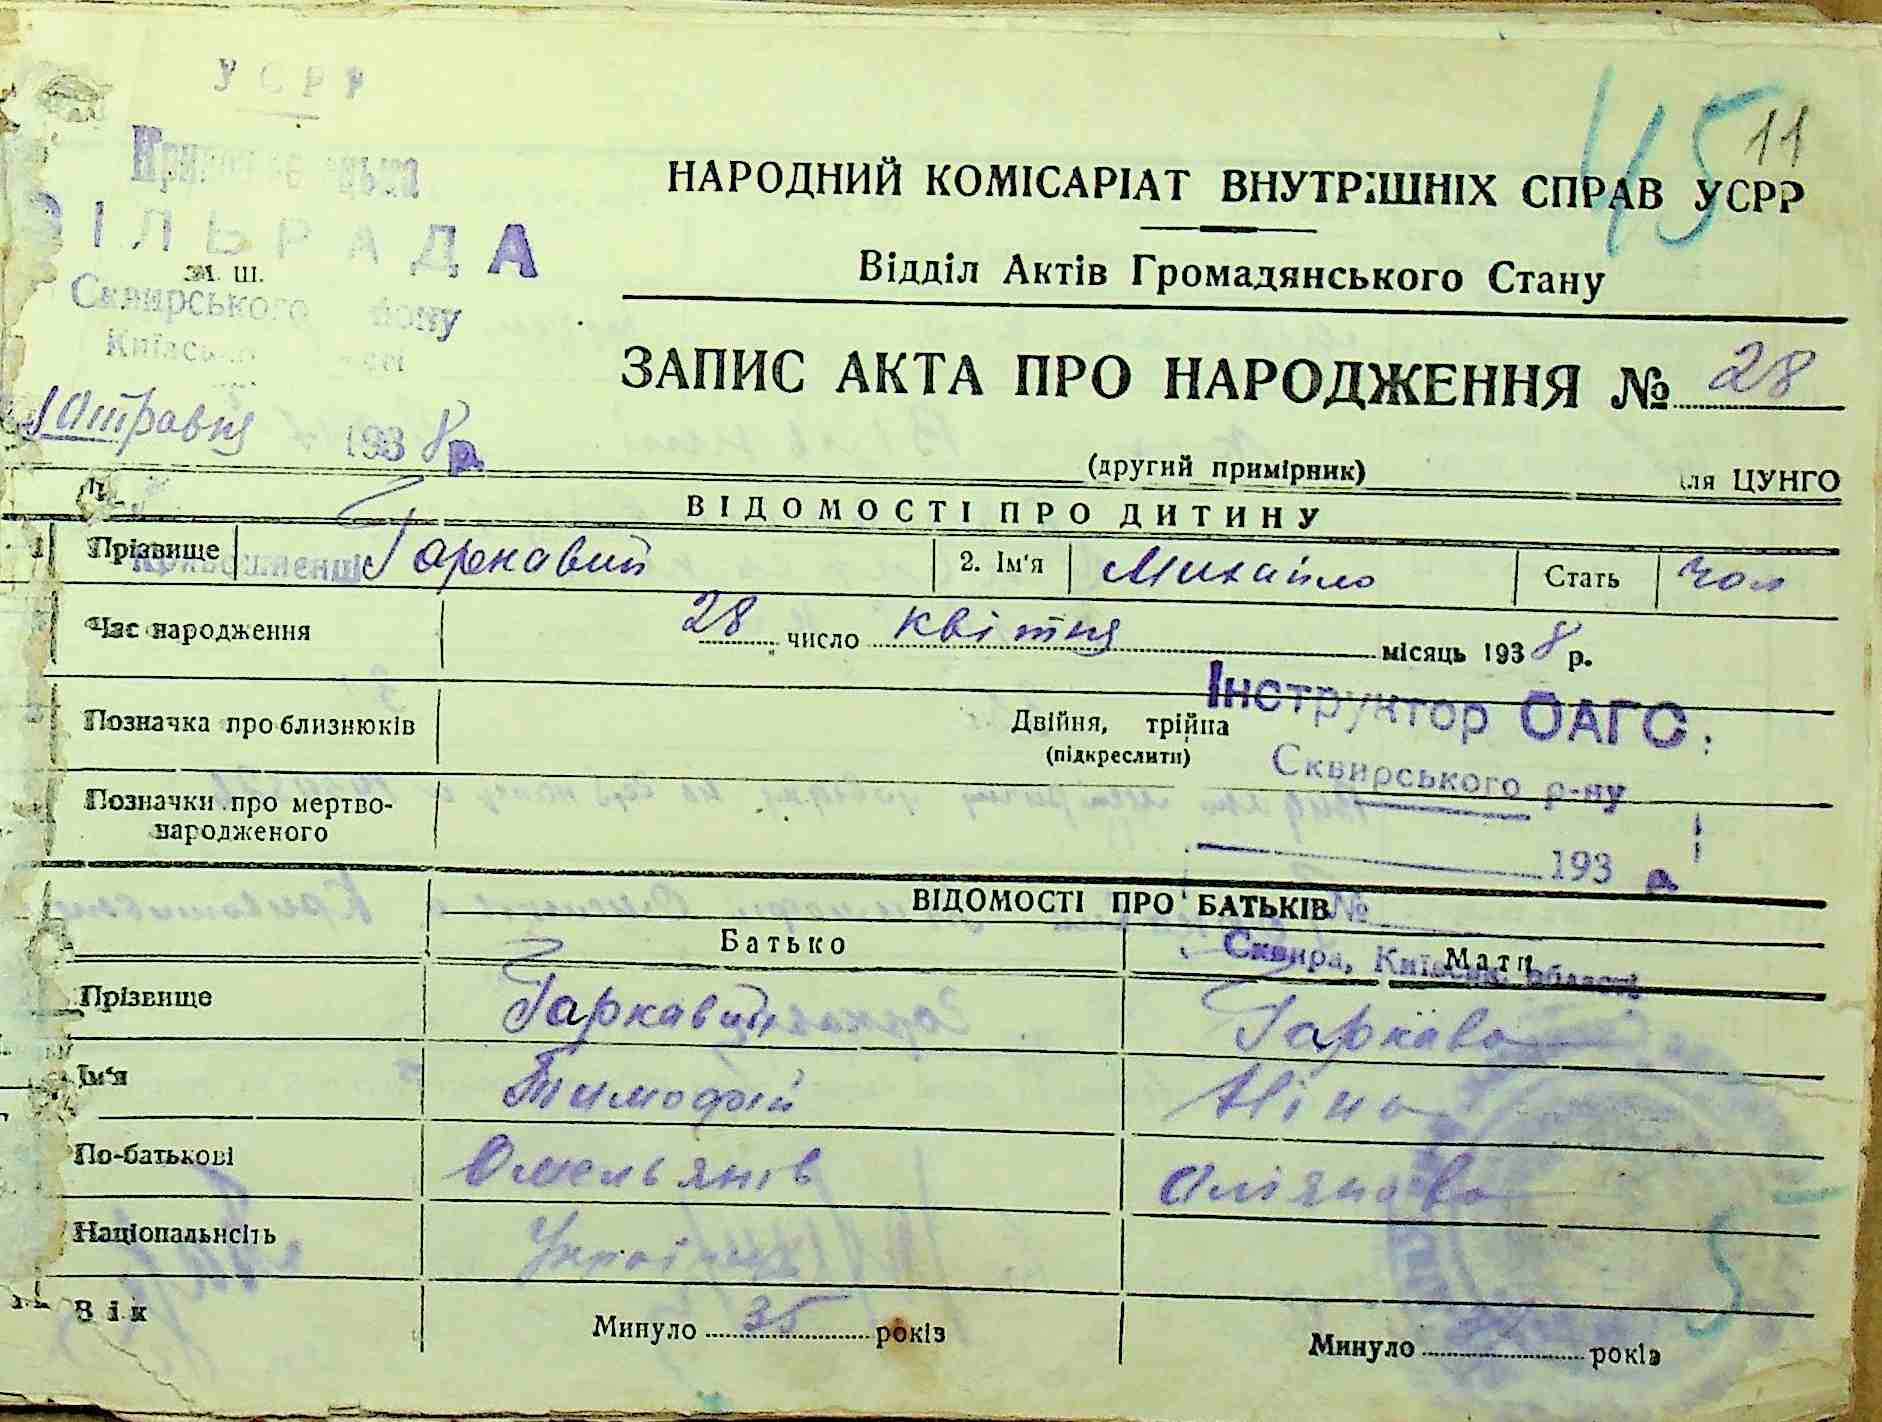 УСРР
45 11
НАРОДНИЙ КОМІСАРІАТ ВНУТРІШНІХ СПРАВ УСРР
СІЛЬРАДА
Відділ Актів Громадянського Стану
Сквирського району
ЗАПИС АКТА ПРО НАРОДЖЕННЯ № 28
травня 1938 р.
(другий примірник)
для ЦУНГО
ВІДОМОСТІ ПРО ДИТИНУ
Прізвище Гаркавий 2. Ім'я Михайло Стать чол
Час народження 28 число квітня місяць 1938 р.
Інструктор ОАГС
Позначка про близнюків Двійня, трійня
(підкреслити)
Сквирського р-ну
Позначки про мертво-
народженого
193 р.
ВІДОМОСТІ ПРО БАТЬКІВ
№
Батько Мати
Сквира, Київськ. області
Прізвище Гаркавий Гаркава
Ім'я Тимофій Ніна
По-батькові Омельянів
Національність Українць
Вік Минуло 35 років Минуло років
5